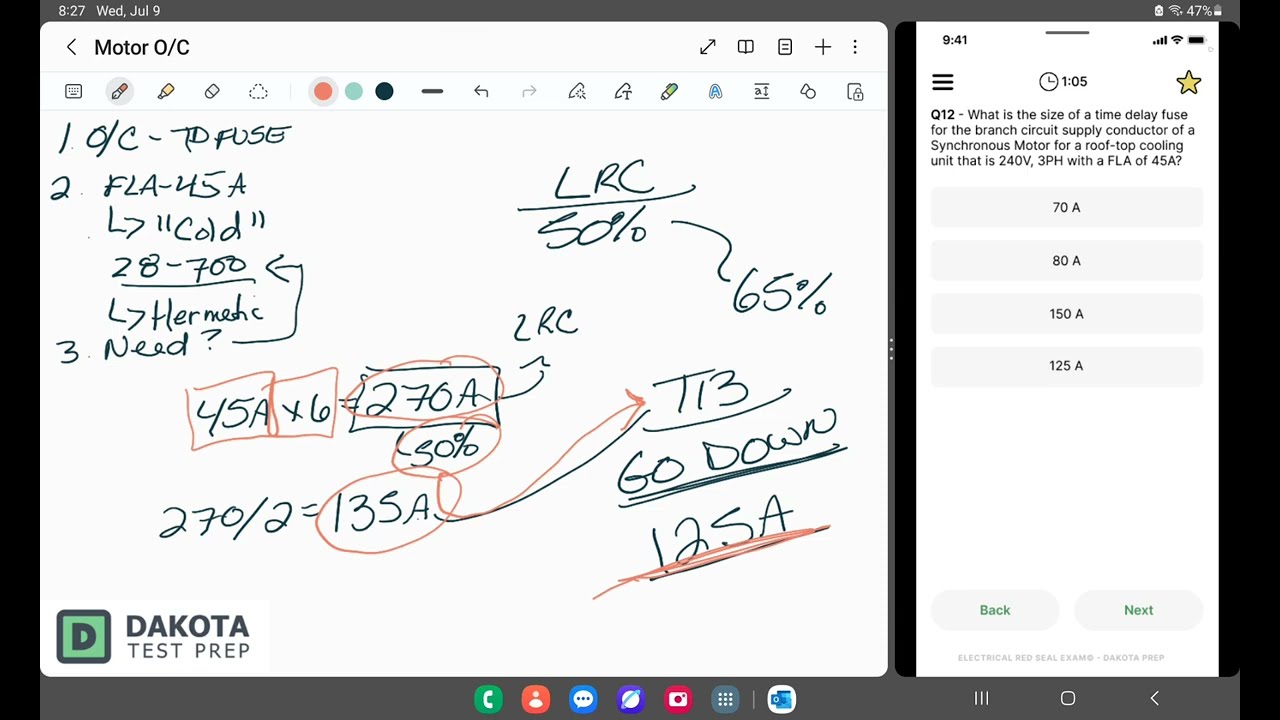 8:27 Wed, Jul 9
47%
Motor O/C
1. O/C - TD FUSE
2. FLA-45A
↳ "Cold"
28-700
↳ Hermetic
3. Need?
LRC
50%
65%
LRC
45A x 6 = 270A
50%
270/2 = 135A
T13
GO DOWN
125A
D DAKOTA
TEST PREP
9:41
1:05
Q12 - What is the size of a time delay fuse
for the branch circuit supply conductor of a
Synchronous Motor for a roof-top cooling
unit that is 240V, 3PH with a FLA of 45A?
70 A
80 A
150 A
125 A
Back Next
ELECTRICAL RED SEAL EXAM© - DAKOTA PREP